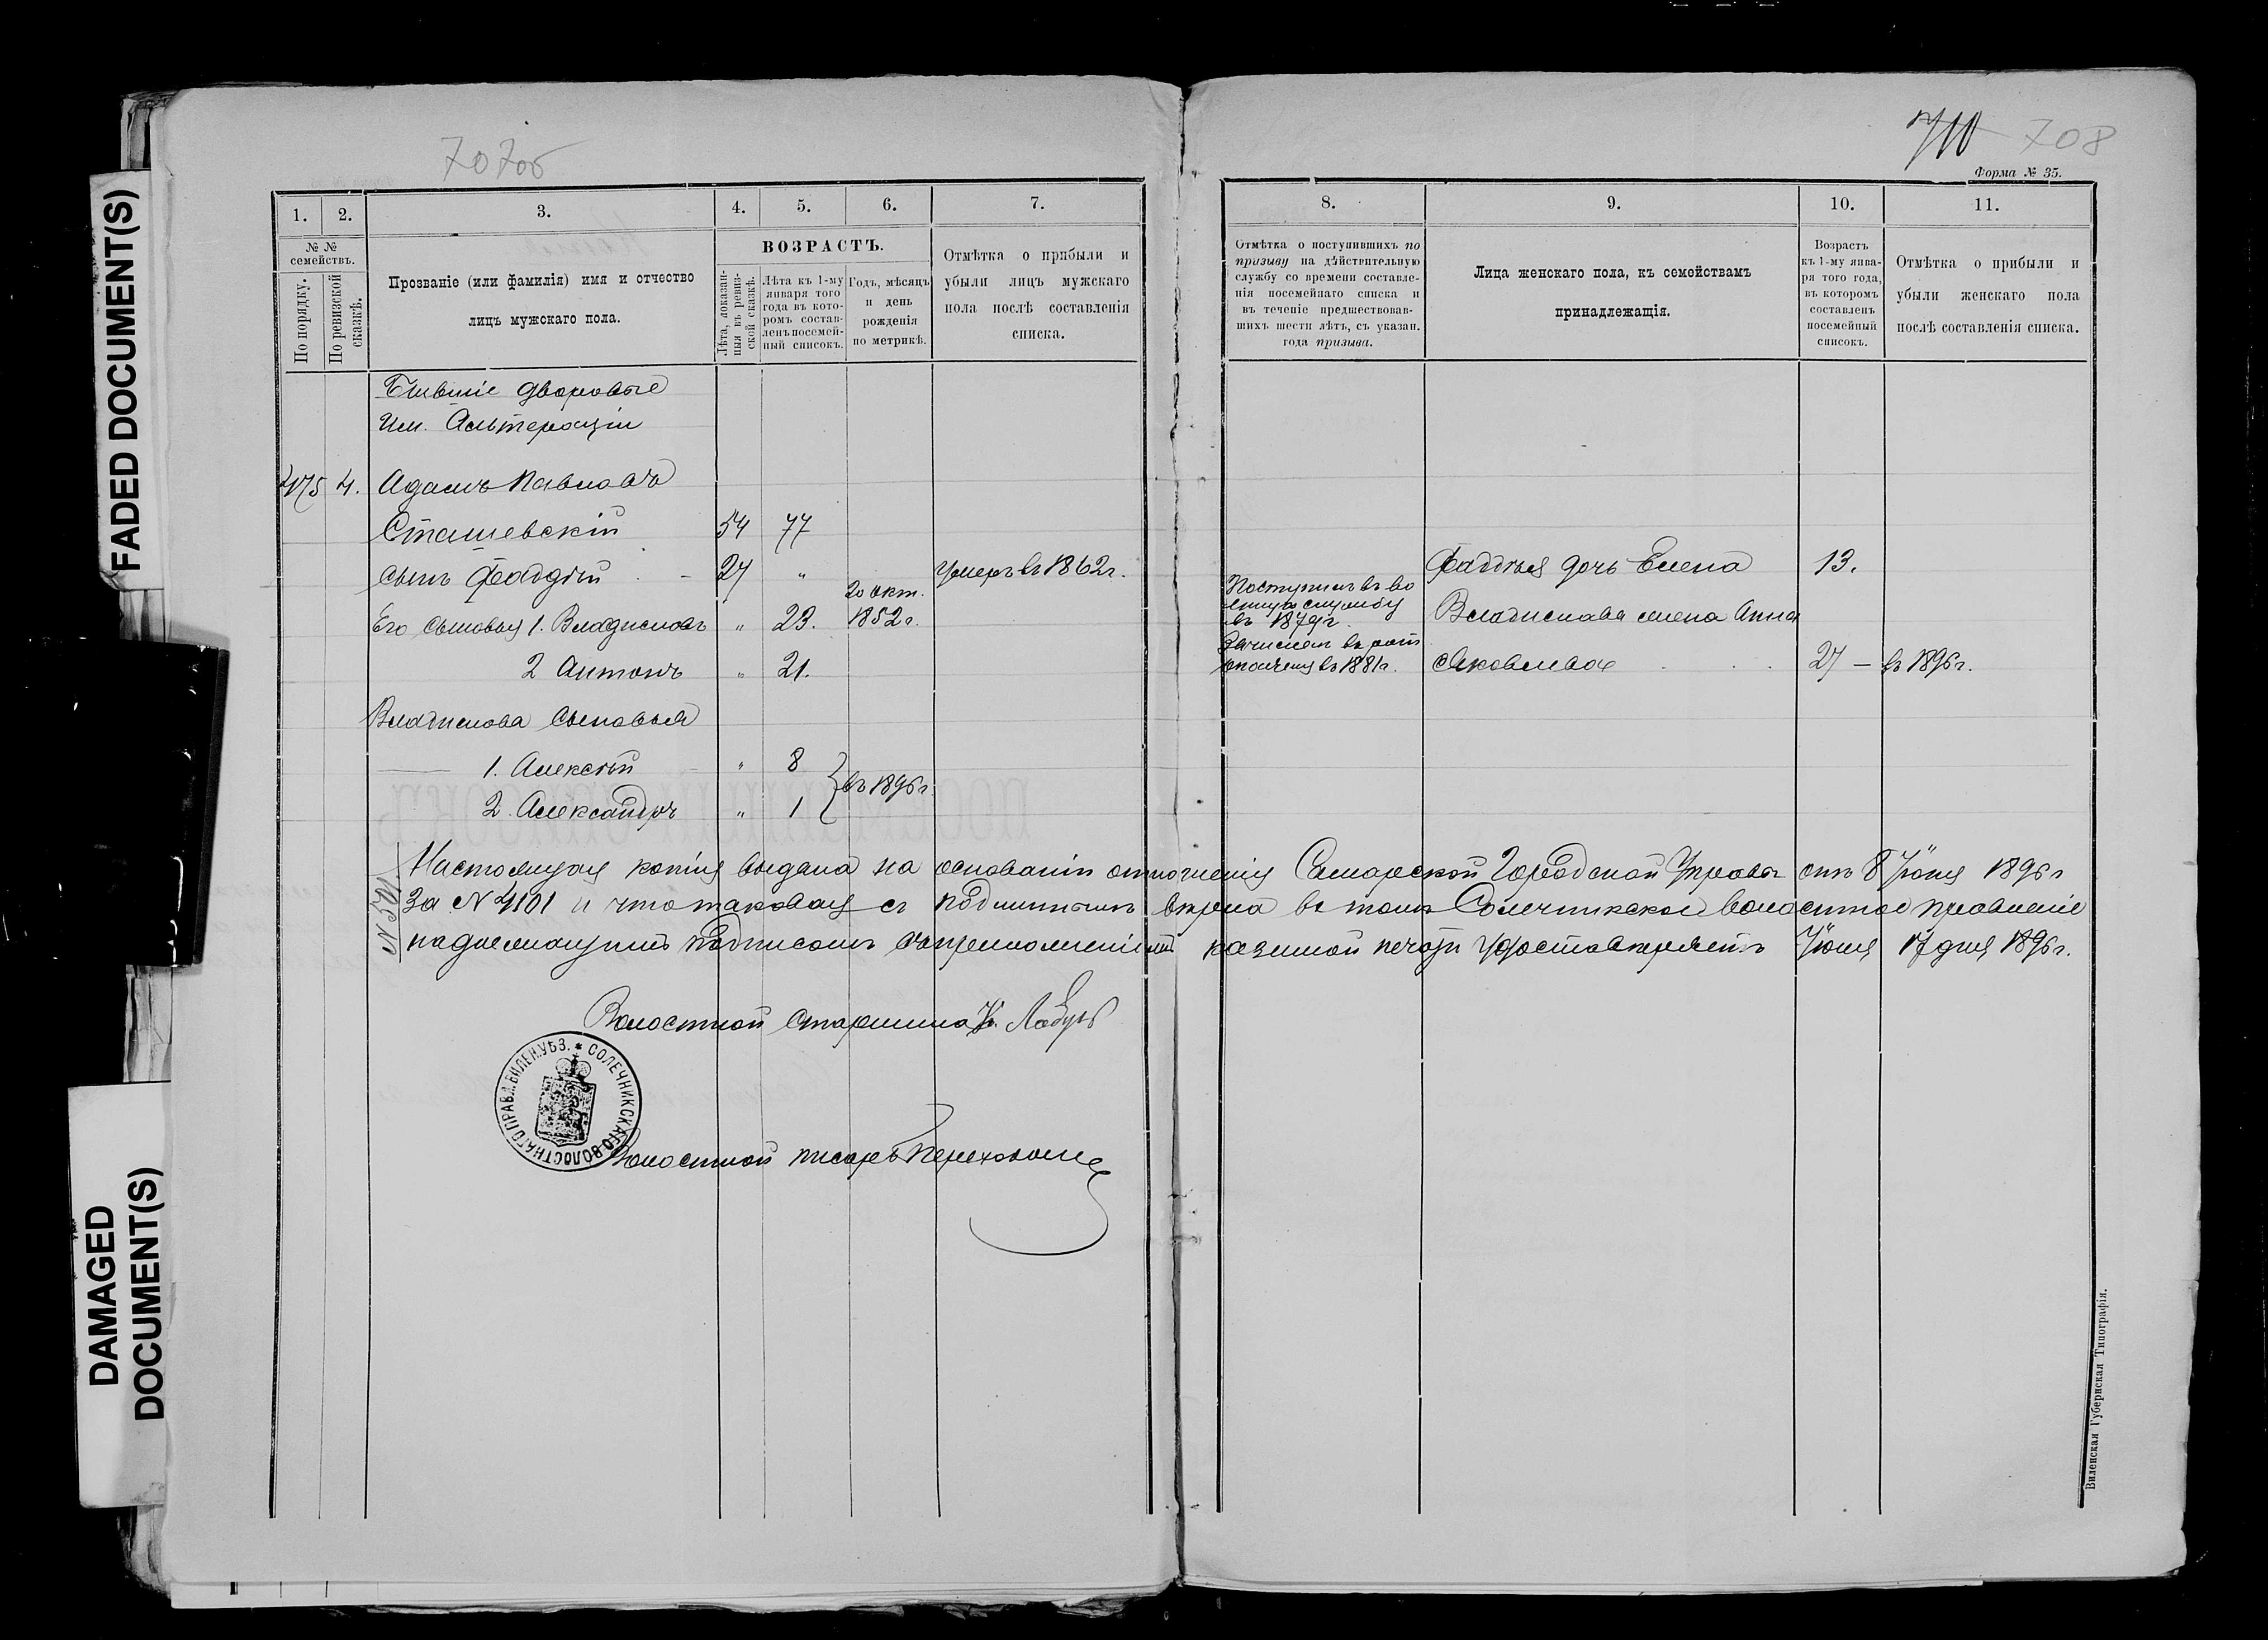 FADED DOCUMENT(S)
DAMAGED
DOCUMENT(S)
707об
710 708
Форма № 35.
1. 2. 3. 4. 5. 6. 7.
№ №
семействъ.
По порядку.
По ревизской
сказкѣ.
Прозваніе (или фамилія) имя и отчество
лицъ мужскаго пола.
ВОЗРАСТЪ.
Лѣта, показан-
ныя въ ревиз-
ской сказкѣ.
Лѣта къ 1-му
января того
года въ кото-
ромъ состав-
ленъ посемей-
ный списокъ.
Годъ, мѣсяцъ
и день
рожденія
по метрикѣ.
Отмѣтка о прибыли и
убыли лицъ мужскаго
пола послѣ составленія
списка.
8. 9. 10. 11.
Отмѣтка о поступившихъ по
призыву на дѣйствительную
службу со времени составле-
нія посемейнаго списка и
въ теченіе предшествовав-
шихъ шести лѣтъ, съ указан.
года призыва.
Лица женскаго пола, къ семействамъ
принадлежащія.
Возрастъ
къ 1-му янва-
ря того года,
въ которомъ
составленъ
посемейный
списокъ.
Отмѣтка о прибыли и
убыли женскаго пола
послѣ составленія списка.
Бывшіе дворовые
Им. Альтерація
475 4. Адамъ Павловъ
Сташевскій 54 77
Сынъ Фаддѣй - 27 " Умеръ въ 1862г.
Его сыновья 1. Владиславъ " 23. 20 окт. 1852г.
2 Антонъ " 21.
Владислава сыновья
1. Алексѣй " 8
2. Александръ " 1 } въ 1896г.
Поступилъ въ во
енную службу
въ 1879г.
Зачисленъ въ рат
ополчен въ 1881г.
Фаддѣя дочь Елена 13.
Владислава жена Анна
Яковлева 27 — въ 1896г.
№ 1050
Настоящая копія выдана на основаніи отношенія Самарской Городской Управы отъ 8 Іюня 1896г
За № 4101 и что таковая съ подлиннымъ вѣрна въ томъ Солечникское волостное правленіе
надлежащимъ подписомъ съ приложеніемъ казенной печати удостовѣряетъ Іюня 17 дня 1896г.
Волостной Старшина
СОЛЕЧНИКСКАГО ВОЛОСТНАГО ПРАВЛ. ВИЛЕН. УѢЗ.
Волостной писарь
Виленская Губернская Типографія.